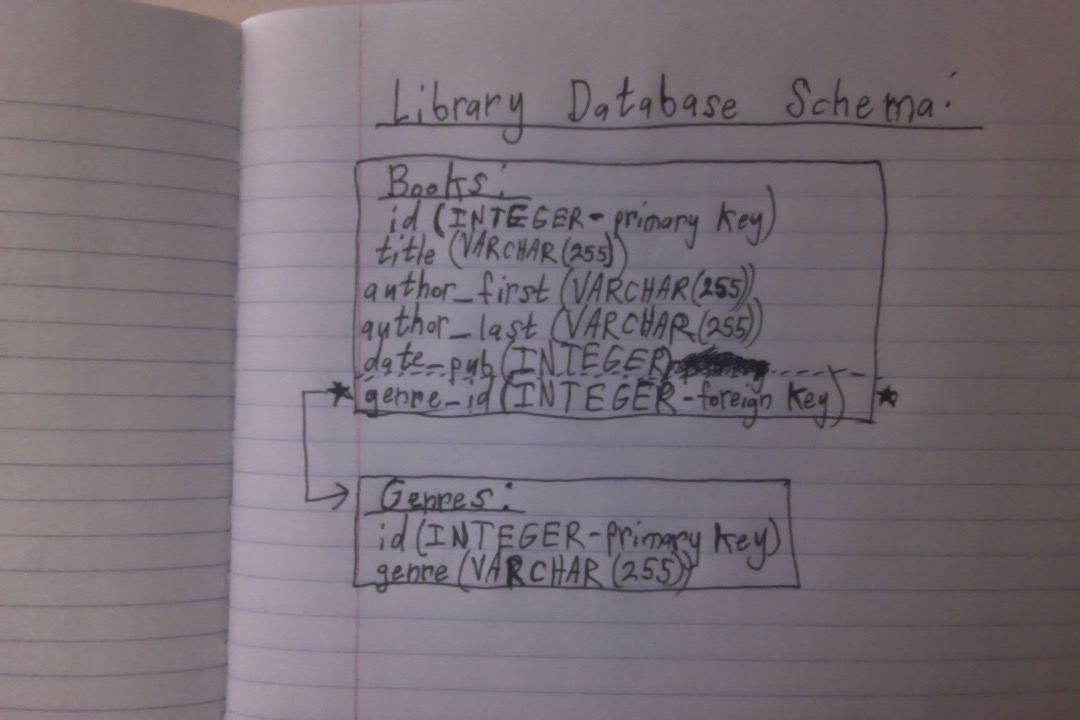 Library Database Schema:
Books:
id (INTEGER-primary key)
title (VARCHAR(255))
author_first (VARCHAR(255))
author_last (VARCHAR(255))
date_pub (INTEGER)
genre_id (INTEGER-foreign key)
Genres:
id (INTEGER-primary key)
genre (VARCHAR(255))